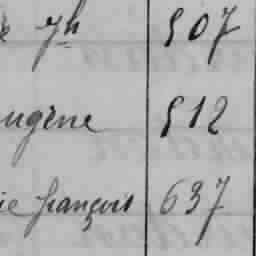 Jh 507
Eugène 512
ie françois 637